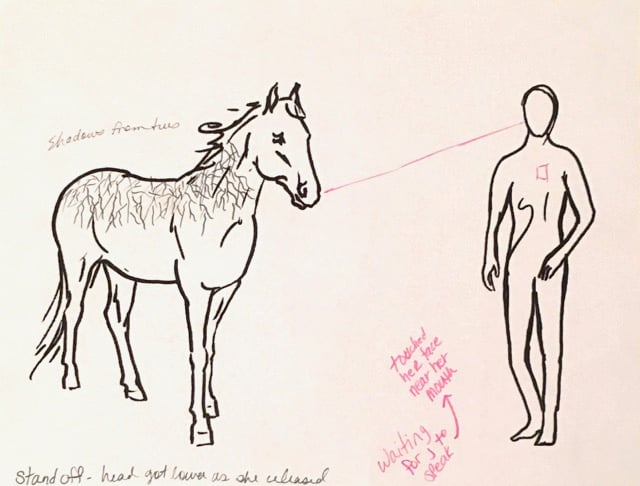 Shadows from trees
touched
her face
near her
mouth
waiting
for J to
speak
Stand off - head got lower as she released